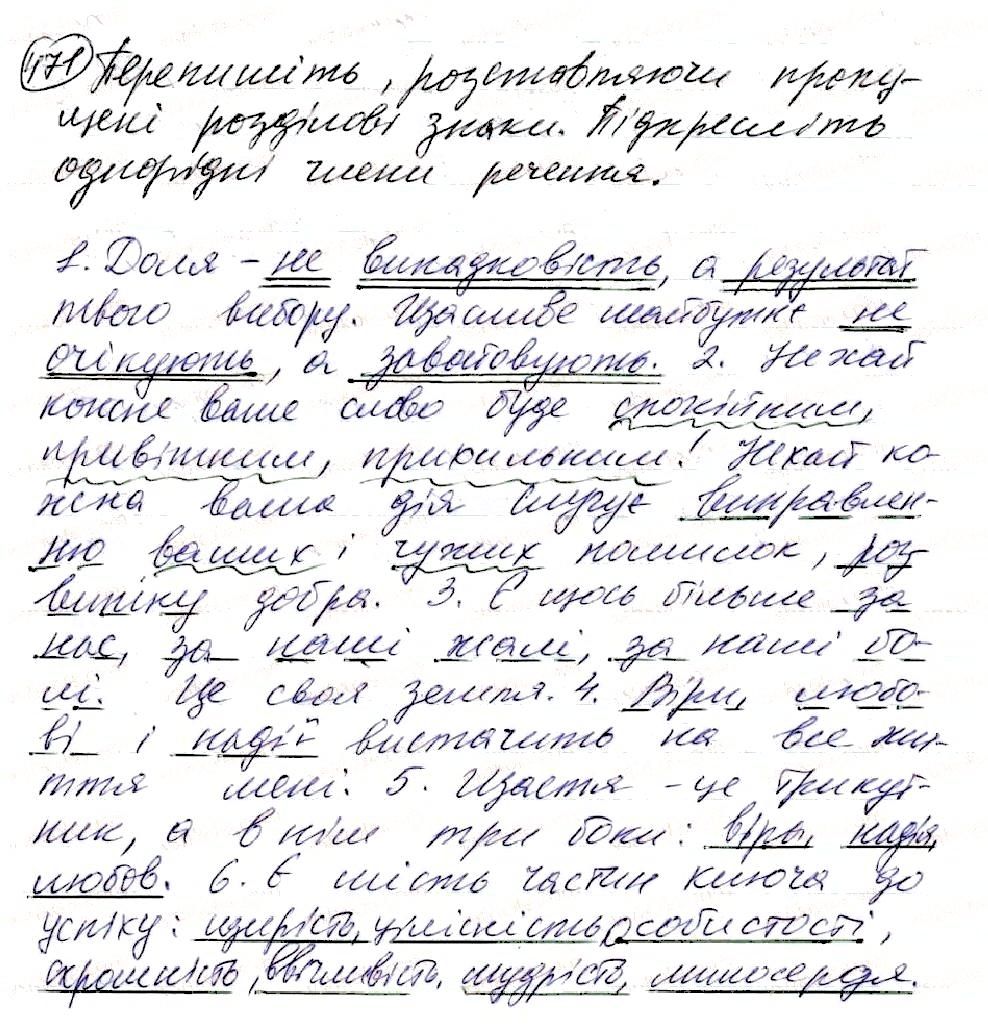 471 Перепишіть, розставляючи пропу-
щені розділові знаки. Підкресліть
однорідні члени речення.
1. Доля – не випадковість, а результат
твого вибору. Щасливе майбутнє не
очікують, а завойовують. 2. Нехай
кожне ваше слово буде спокійним,
привітним, прихильним! Нехай ко-
жна ваша дія слугує виправлен-
ню ваших і чужих помилок, роз
витку добра. 3. Є щось більше за
нас, за наші жалі, за наші бо-
лі. Це своя земля. 4. Віри, любо-
ві і надії вистачить на все жи-
ття мені. 5. Щастя – це трикут-
ник, а в нім три боки: віра, надія,
любов. 6. Є шість частин ключа до
успіху: щирість, цілісність особистості,
скромність, ввічливість, мудрість, милосердя.